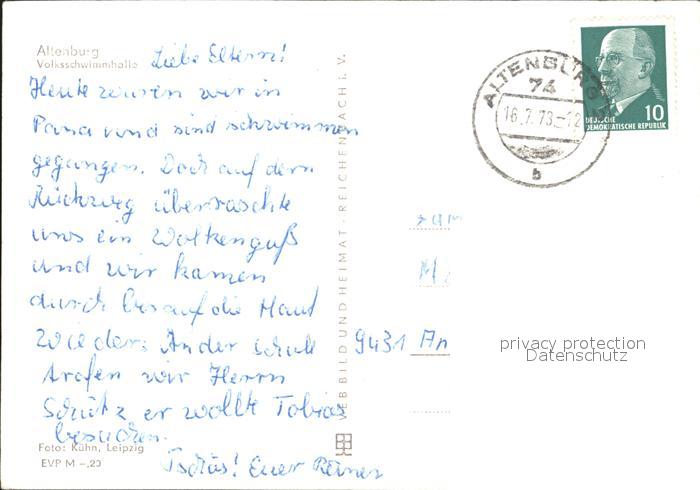 Altenburg
Volksschwimmhalle
Liebe Eltern!
Heute waren wir in
Pana und sind schwimmen
gegangen. Doch auf dem
Rückweg überraschte
uns ein Wolkenguß
und wir kamen
durch bis auf die Haut
wieder. An der Schule
trafen wir Herrn
Schütz er wollte Tobias
besuchen.
Tschüs! Euer Rainer
Foto: Kühn, Leipzig
EVP M –,20
VEB BILD UND HEIMAT · REICHENBACH i. V.
ALTENBURG
74
16.7.73-12
b
10
DEUTSCHE
DEMOKRATISCHE REPUBLIK
9431 An
privacy protection
Datenschutz